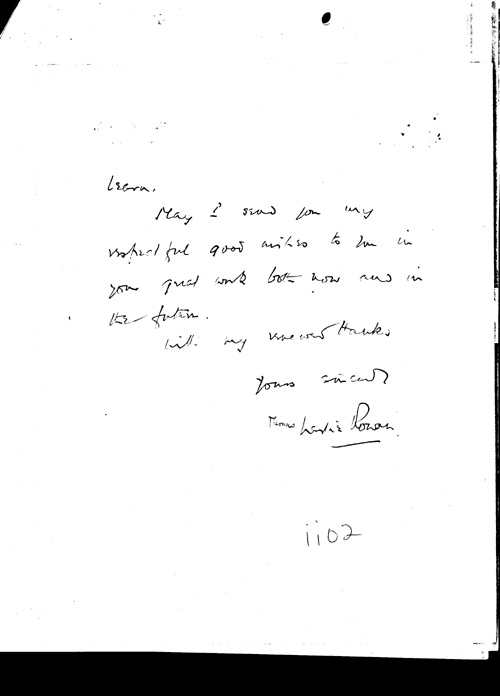 learn.
May I send you my
respectful good wishes to you in
your great work both now and in
the future.
With my renewed thanks
Yours sincerely
Leslie Rowan
1102